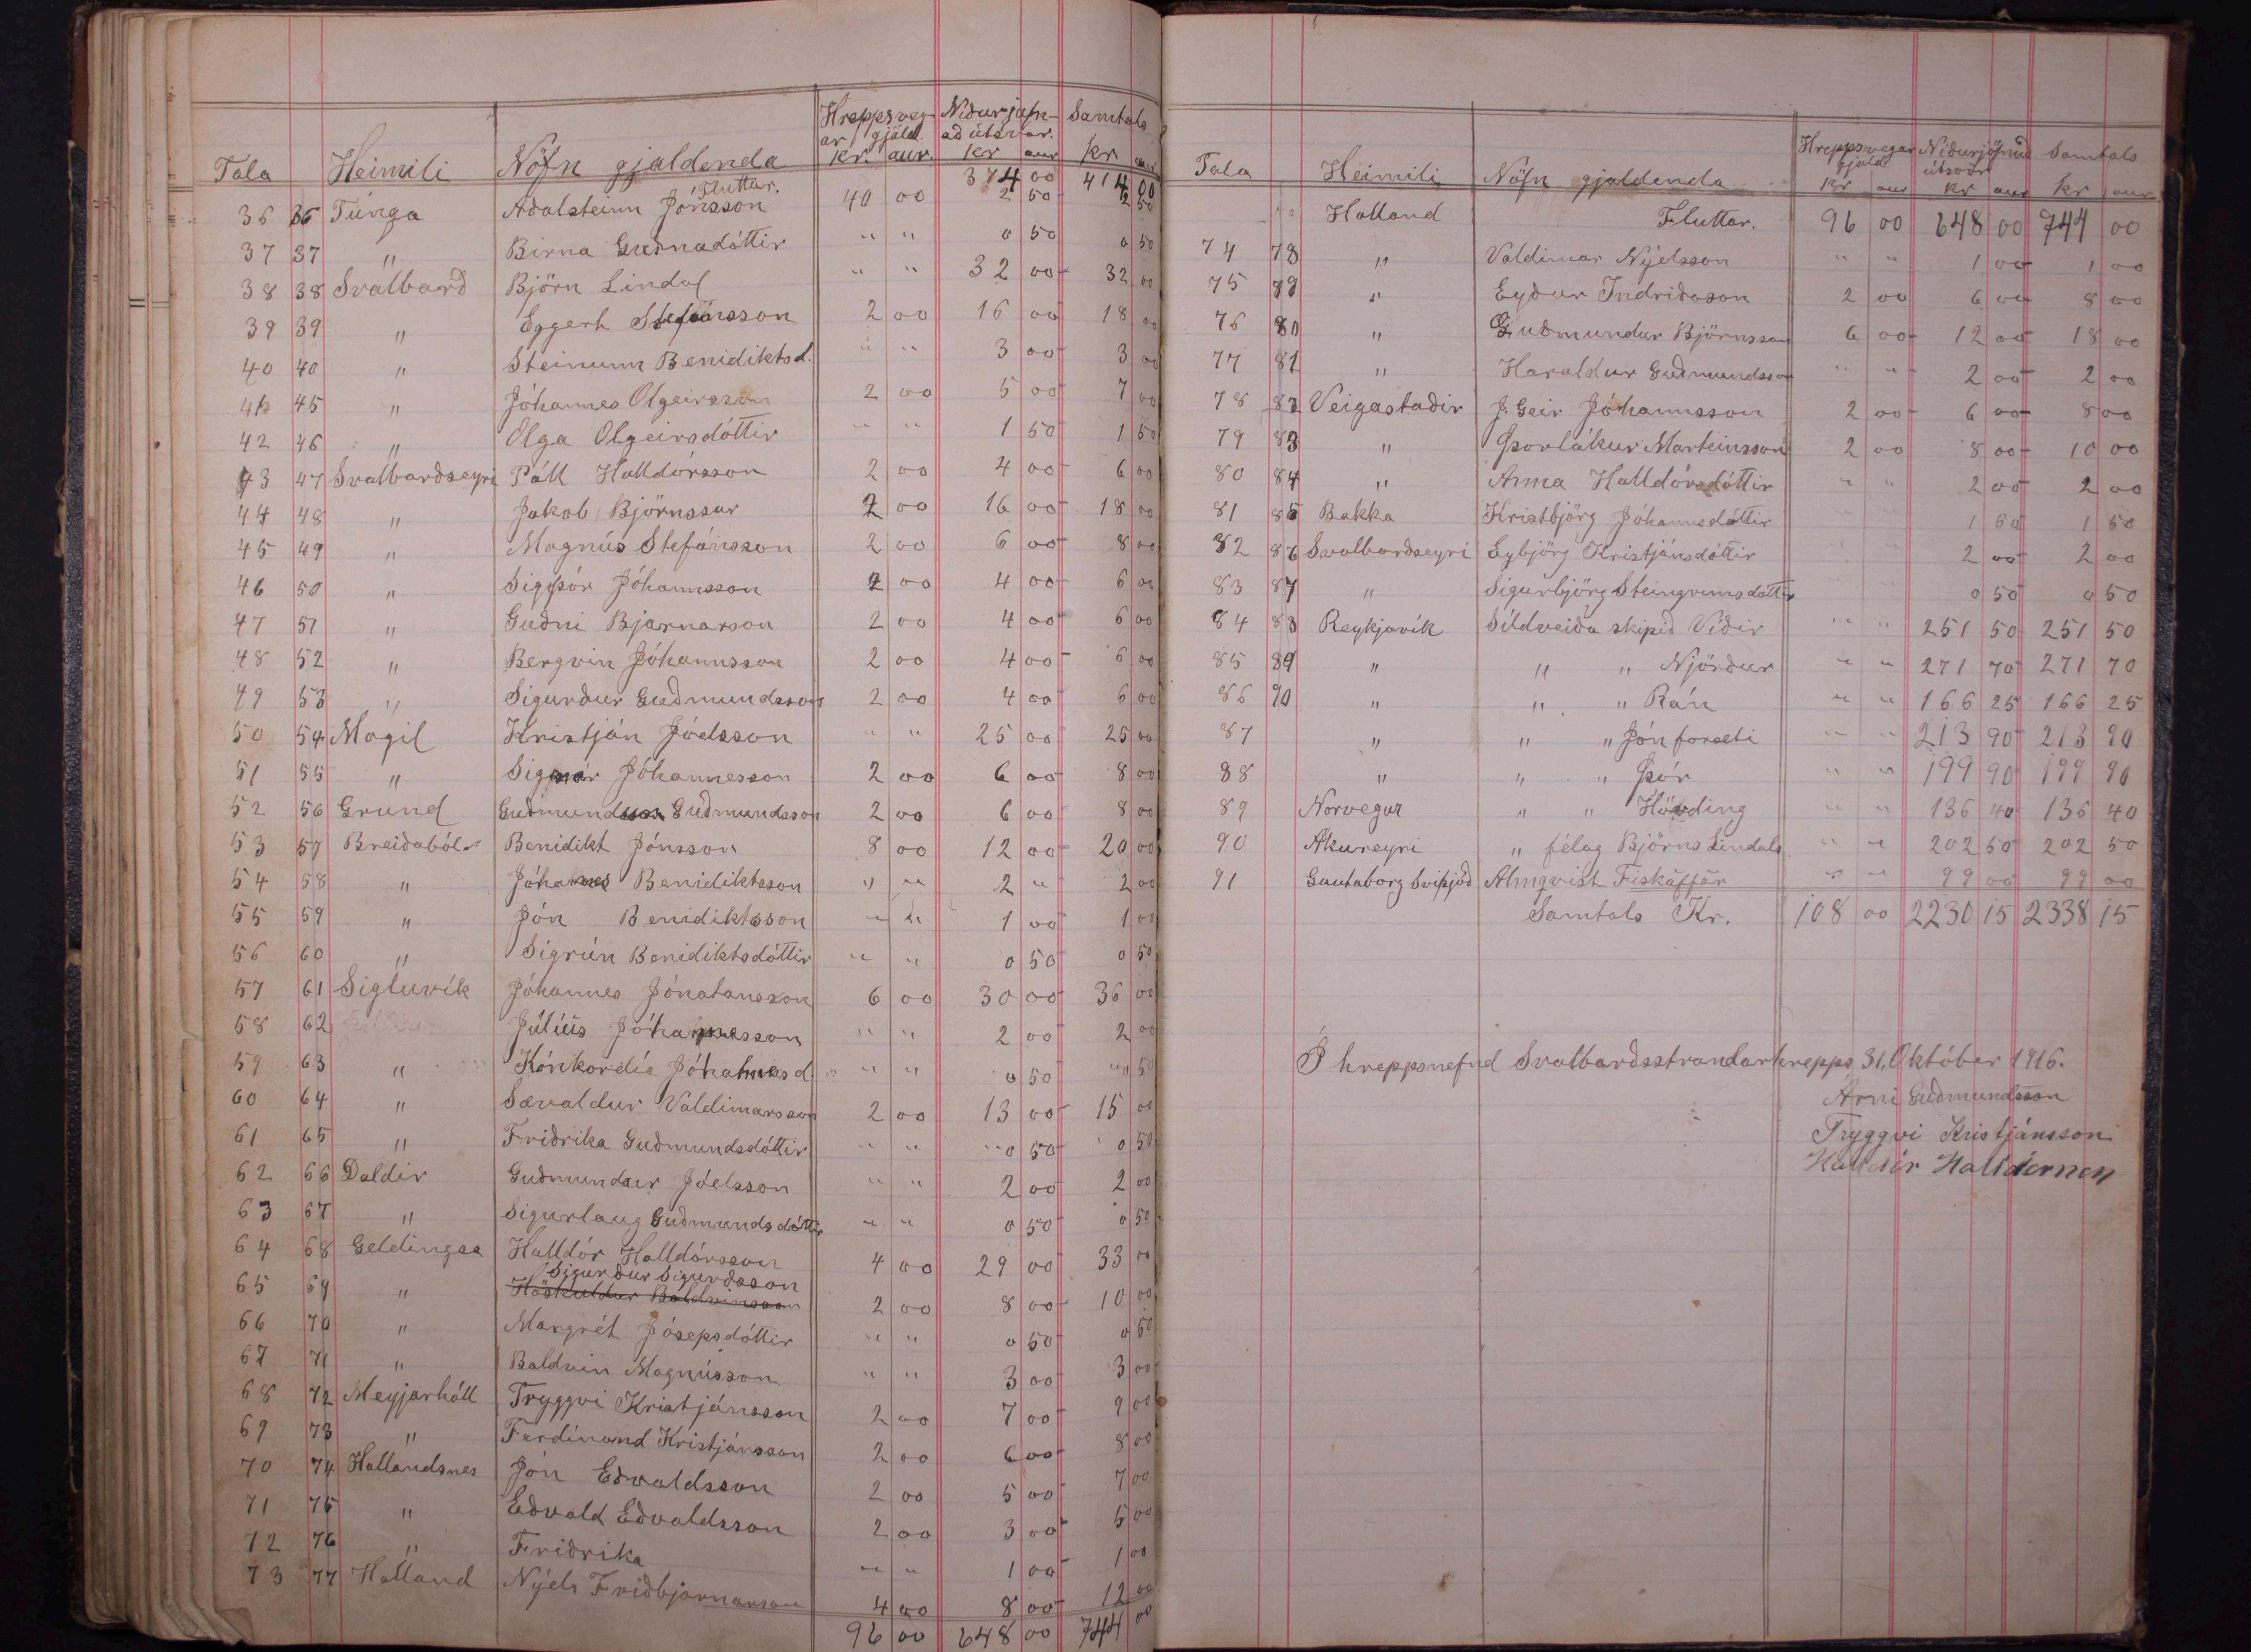 Tala Heimili Nöfn gjaldenda Hreppsvegar gjald Niðurjafnað útsvar. Samtals
kr. aur. kr aur kr aur
Fluttar. 40 00 374 00 414 00
36 36 Tunga Aðalsteinn Jónsson 2 50 2 50
37 37 " Birna Guðnadóttir " " 0 50 0 50
38 38 Svalbarð Björn Lindal " " 32 00 32 00
39 39 " Eggert Stefánsson 2 00 16 00 18 00
40 40 " Steinunn Benidiktsd. " " 3 00 3 00
41 45 " Jóhannes Olgeirsson 2 00 5 00 7 00
42 46 " Olga Olgeirsdóttir " " 1 50 1 50
43 47 Svalbarðseyri Páll Halldórsson 2 00 4 00 6 00
44 48 " Jakob Björnssur 2 00 16 00 18 00
45 49 " Magnús Stefánsson 2 00 6 00 8 00
46 50 " Sigþór Jóhannsson 2 00 4 00 6 00
47 51 " Guðni Bjarnarson 2 00 4 00 6 00
48 52 " Bergvin Jóhannsson 2 00 4 00 6 00
49 53 " Sigurður Guðmundsson 2 00 4 00 6 00
50 54 Mógil Kristján Jóelsson " " 25 00 25 00
51 55 " Sigmar Jóhannesson 2 00 6 00 8 00
52 56 Grund Guðmundur Guðmundsson 2 00 6 00 8 00
53 57 Breiðaból Benidikt Jónsson 8 00 12 00 20 00
54 58 " Jóhannes Benidiktsson " " 2 " 2 00
55 59 " Jón Benidiktsson " " 1 00 1 00
56 60 " Sigrún Benidiktsdóttir " " 0 50 0 50
57 61 Sigluvík Jóhannes Jónatansson 6 00 30 00 36 00
58 62 Júlíus Jóhannesson " " 2 00 2 00
59 63 " Kónkordía Jóhannesd. " " 0 50 0 50
60 64 " Sævaldur Valdimarsson 2 00 13 00 15 00
61 65 " Friðrika Guðmundsdóttir " " 0 50 0 50
62 66 Daldir Guðmundur Jóelsson " " 2 00 2 00
63 67 " Sigurlaug Guðmundsdóttir " " 0 50 0 50
64 68 Geldingsá Halldór Halldórsson 4 00 29 00 33 00
Sigurður Sigurðsson
65 69 " Höskuldur Baldvinsson 2 00 8 00 10 00
66 70 " Margrét Jósepsdóttir " " 0 50 0 50
67 71 " Baldvin Magnússon " " 3 00 3 00
68 72 Meyjarhóll Tryggvi Kristjánsson 2 00 7 00 9 00
69 73 " Ferdínand Kristjánsson 2 00 6 00 8 00
70 74 Hallandsnes Jón Eðvaldsson 2 00 5 00 7 00
71 75 " Eðvald Eðvaldsson 2 00 3 00 5 00
72 76 " Friðrika " " 1 00 1 00
73 77 Halland Nýels Friðbjarnarson 4 00 8 00 12 00
96 00 648 00 744 00
Tala Heimili Nöfn gjaldenda Hreppsvegar gjald Niðurjöfnuð útsvör Samtals
kr aur kr aur kr aur
Halland Fluttar. 96 00 648 00 744 00
74 78 " Valdimar Nýelsson " " 1 00 1 00
75 79 " Eyður Indriðason 2 00 6 00 8 00
76 80 " Guðmundur Björnsson 6 00 12 00 18 00
77 81 " Haraldur Guðmundsson " " 2 00 2 00
78 82 Veigastaðir J. Geir Jóhannsson 2 00 6 00 8 00
79 83 " Þorlákur Marteinsson 2 00 8 00 10 00
80 84 " Anna Halldórsdóttir " " 2 00 2 00
81 85 Bakka Kristbjörg Jóhannsdóttir 1 50 1 50
82 86 Svalbarðseyri Eybjörg Kristjánsdóttir 2 00 2 00
83 87 " Sigurbjörg Steingrimsdóttir 0 50 0 50
84 88 Reykjavík Síldveiða skipið Víðir " " 251 50 251 50
85 89 " " " Njörður " " 271 70 271 70
86 90 " " " Rán " " 166 25 166 25
87 " " " Jón forseti " " 213 90 213 90
88 " " " Þór " " 199 90 199 90
89 Norvegur " " Hövding " " 136 40 136 40
90 Akureyri " félag Björns Lindals " " 202 50 202 50
91 Gautaborg Svíþjóð Almqvist Fiskäffär " " 99 00 99 00
Samtals Kr. 108 00 2230 15 2338 15
Í hreppsnefnd Svalbarðsstrandarhrepps, 31. Október 1916.
Árni Guðmundsson
Tryggvi Kristjánsson
Halldór Halldórsson